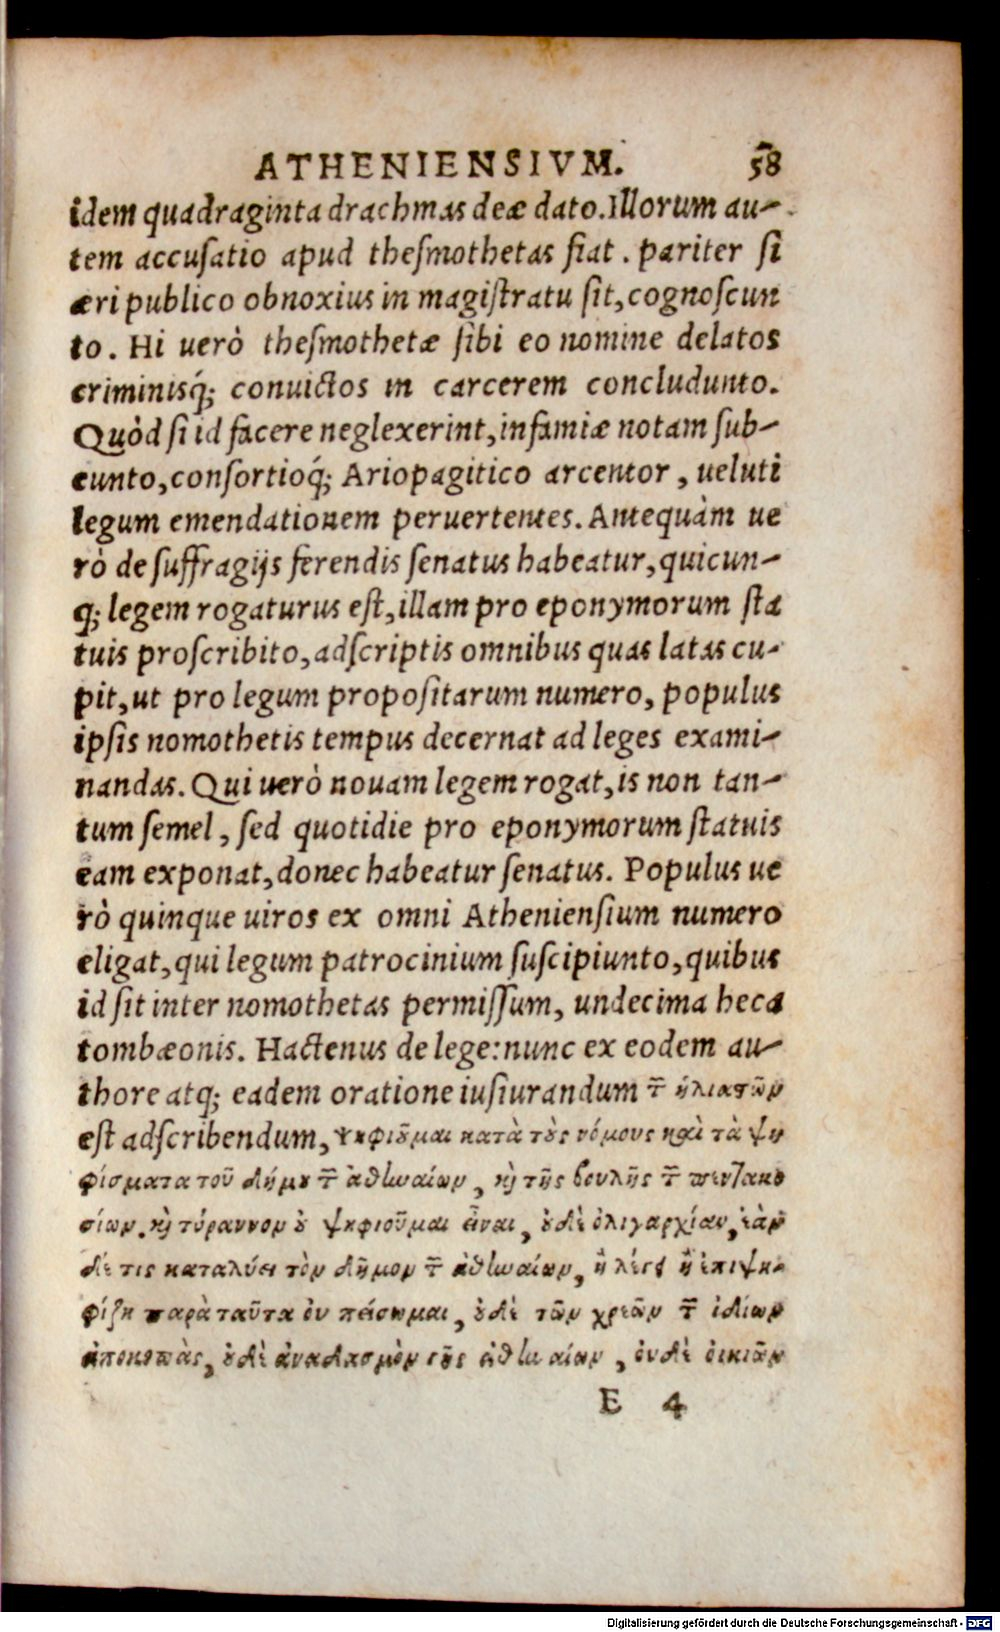 ATHENIENSIVM. 58
idem quadraginta drachmas deæ dato. Illorum au-
tem accuſatio apud theſmothetas fiat. pariter ſi
æri publico obnoxius in magiſtratu ſit, cognoſcun
to. Hi uerò theſmothetæ ſibi eo nomine delatos
criminisq́; conuictos in carcerem concludunto.
Quòd ſi id facere neglexerint, infamiæ notam ſub-
eunto, conſortioq́; Ariopagitico arcentor, ueluti
legum emendationem peruertentes. Antequàm ue
rò de ſuffragijs ferendis ſenatus habeatur, quicun-
q; legem rogaturus eſt, illam pro eponymorum ſta
tuis proſcribito, adſcriptis omnibus quas latas cu-
pit, ut pro legum propoſitarum numero, populus
ipſis nomothetis tempus decernat ad leges exami-
nandas. Qui uerò nouam legem rogat, is non tan-
tum ſemel, ſed quotidie pro eponymorum ſtatuis
eam exponat, donec habeatur ſenatus. Populus ue
rò quinque uiros ex omni Athenienſium numero
eligat, qui legum patrocinium ſuſcipiunto, quibus
id ſit inter nomothetas permiſſum, undecima heca
tombæonis. Hactenus de lege: nunc ex eodem au-
thore atq; eadem oratione iuſiurandum τ̃ ἡλιαστῶν
eſt adſcribendum, ψηφιοῦμαι κατὰ τοὺς νόμους καὶ τὰ ψη
φίσματα τοῦ δήμου τ̃ ἀθηναίων, καὶ τῆς βουλῆς τ̃ πεντακο
σίων. καὶ τύραννον οὐ ψηφιοῦμαι εἶναι, οὐδὲ ὀλιγαρχίαν, ἐὰν
δέ τις καταλύει τὸν δῆμον τ̃ ἀθηναίων, ἢ λέγῃ ἢ ἐπιψη-
φίζῃ παρὰ ταῦτα οὐ πείσωμαι, οὐδὲ τῶν χρεῶν τ̃ ἰδίων
ἀποκοπὰς, οὐδὲ ἀναδασμὸν γῆς ἀθηναίων, οὐδὲ οἰκιῶν
E 4
Digitalisierung gefördert durch die Deutsche Forschungsgemeinschaft - DFG